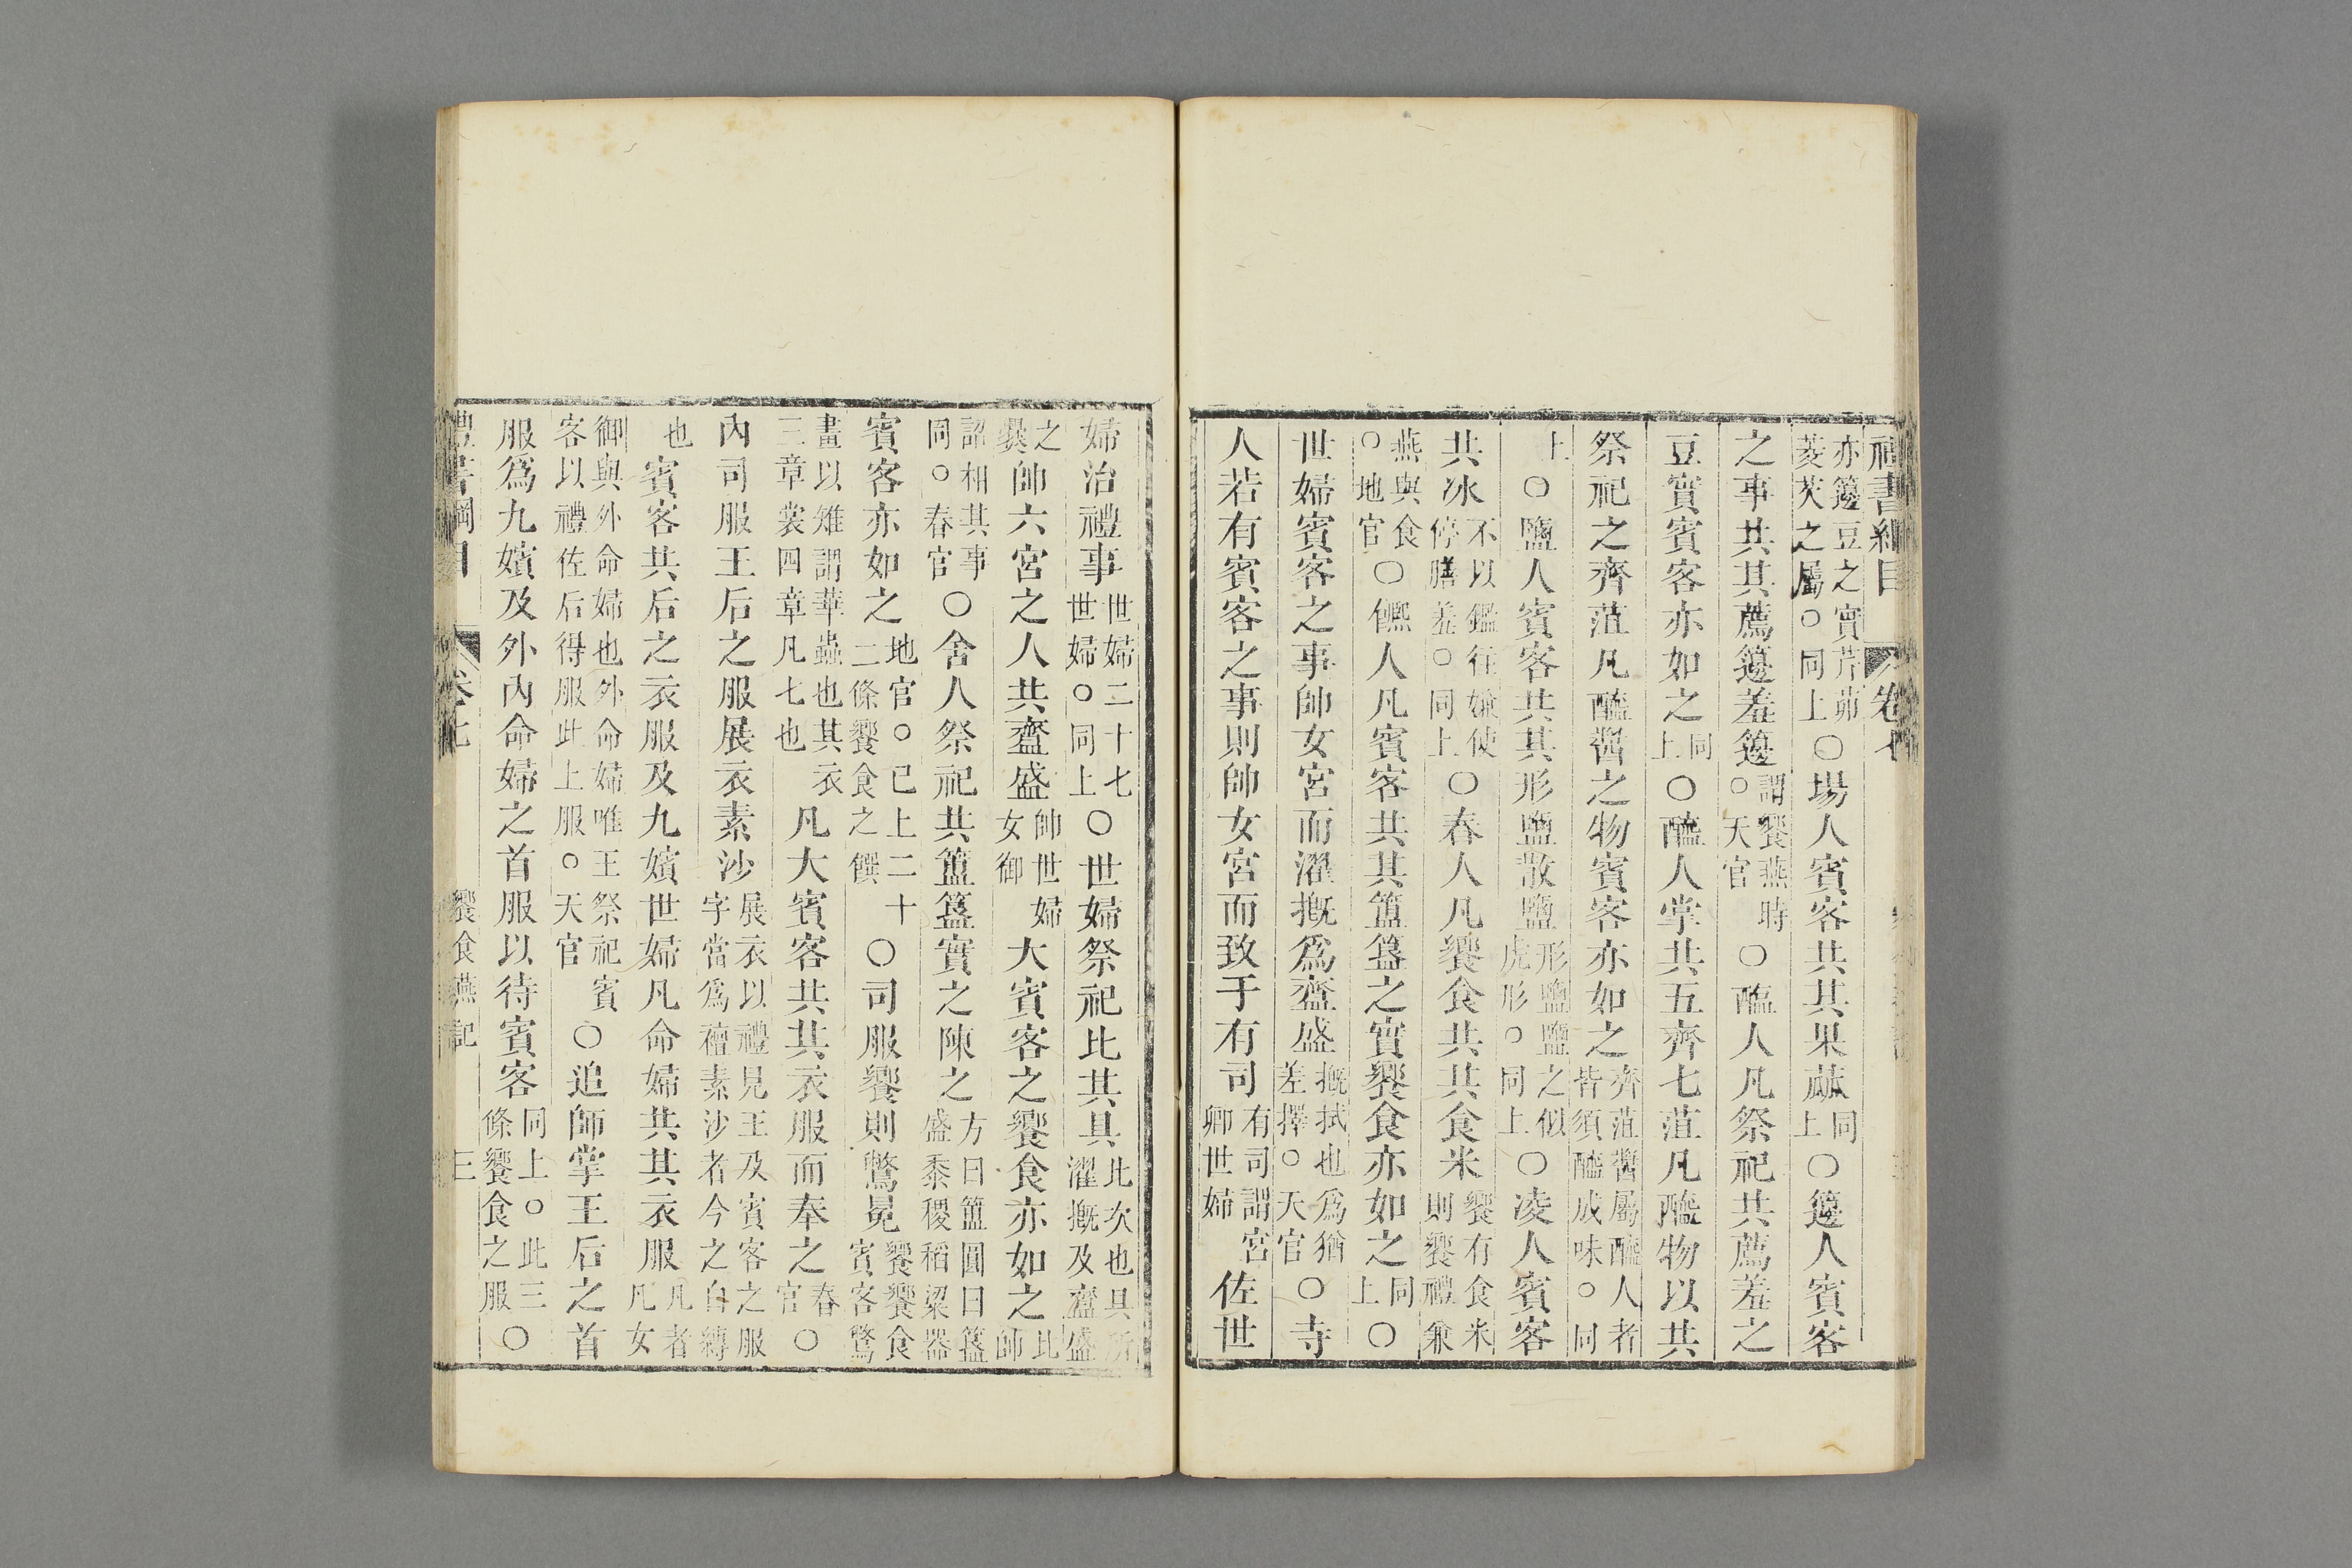 禮書綱目 卷七
亦籩豆之實芹茆菱芡之屬○同上○場人賓客共其果蓏同上○籩人賓客
之事共其薦籩羞籩謂饗燕時○天官○醢人凡祭祀共薦羞之
豆實賓客亦如之同上○醯人掌共五齊七菹凡醯物以共
祭祀之齊菹凡醯醬之物賓客亦如之齊菹醬屬醯人者皆須醯成味○同
上○鹽人賓客共其形鹽散鹽形鹽鹽之似虎形○同上○凌人賓客
共冰不以鑑往嫌使停膳羞○同上○舂人凡饗食共其食米饗有食米則饗禮兼
燕與食○地官○饎人凡賓客共其簠簋之實饗食亦如之同上○
世婦賓客之事帥女宮而濯摡爲齍盛摡拭也爲猶差擇○天官○寺
人若有賓客之事則帥女宮而致于有司有司謂宮卿世婦佐世
婦治禮事世婦二十七世婦○同上○世婦祭祀比其具比次也具所濯摡及齍盛
之爨帥六宮之人共齍盛帥世婦女御大賓客之饗食亦如之比帥
詔相其事同○春官○舍人祭祀共簠簋實之陳之方曰簠圓曰簋盛黍稷稻粱器
賓客亦如之地官○已上二十二條饗食之饌○司服饗則鷩冕饗饗食賓客鷩
畫以雉謂華蟲也其衣三章裳四章凡七也凡大賓客共其衣服而奉之春官○
內司服王后之服展衣素沙展衣以禮見王及賓客之服字當爲襢素沙者今之白縳
也賓客共后之衣服及九嬪世婦凡命婦共其衣服凡者凡女
御與外命婦也外命婦唯王祭祀賓客以禮佐后得服此上服○天官○追師掌王后之首
服爲九嬪及外內命婦之首服以待賓客同上○此三條饗食之服○
禮書綱目 卷七 饗食燕記 三